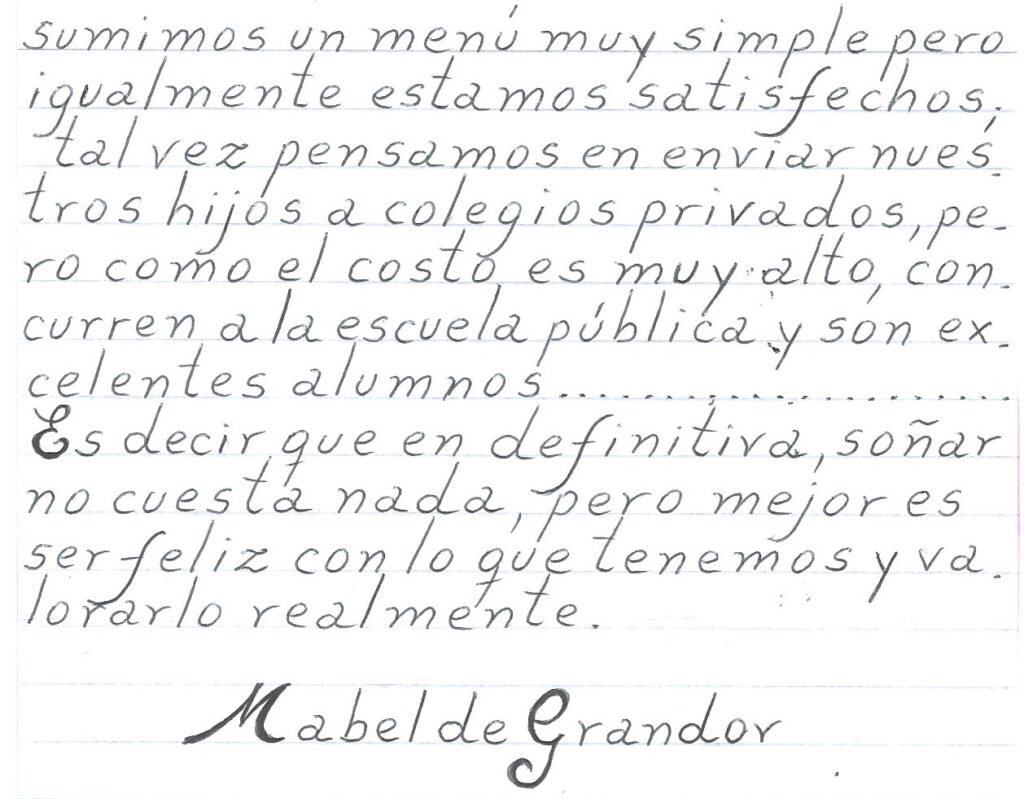 sumimos un menú muy simple pero
igualmente estamos satisfechos;
tal vez pensamos en enviar nues-
tros hijos a colegios privados, pe-
ro como el costo es muy alto, con-
curren a la escuela pública y son ex-
celentes alumnos.......................
Es decir que en definitiva, soñar
no cuesta nada, pero mejor es
ser feliz con lo que tenemos y va-
lorarlo realmente.
Mabel de Grandor